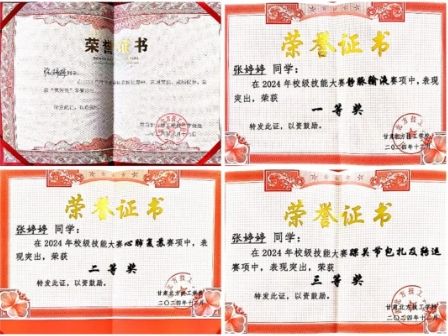 荣誉证书
张婷婷
特发此证
荣誉证书
张婷婷 同学：
在 2024 年校级技能大赛静脉输液赛项中，表现
突出，荣获
一等奖
特发此证，以资鼓励。
甘肃北方技工学校
二〇二四年十二月
荣誉证书
张婷婷 同学：
在 2024 年校级技能大赛心肺复苏赛项中，表
现突出，荣获
二等奖
特发此证，以资鼓励。
甘肃北方技工学校
二〇二四年十二月
荣誉证书
张婷婷 同学：
在 2024 年校级技能大赛踝关节包扎及转运
赛项中，表现突出，荣获
三等奖
特发此证，以资鼓励。
甘肃北方技工学校
二〇二四年十二月